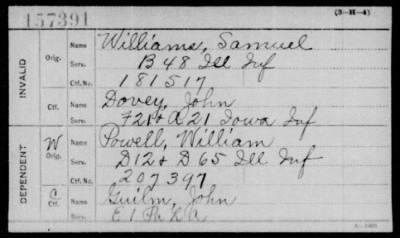 157391
(3-H-4)
INVALID
Orig.
Name Williams, Samuel
Serv. B 48 Ill Inf
Ctf. No. 181517
Ctf.
Name Dovey, John
Serv. F 21 & A 21 Iowa Inf
DEPENDENT
W
Orig.
Name Powell, William
Serv. D 12 & D 65 Ill Inf
Ctf. No. 207397
C
Ctf.
Name Guilm, John
Serv. E 1